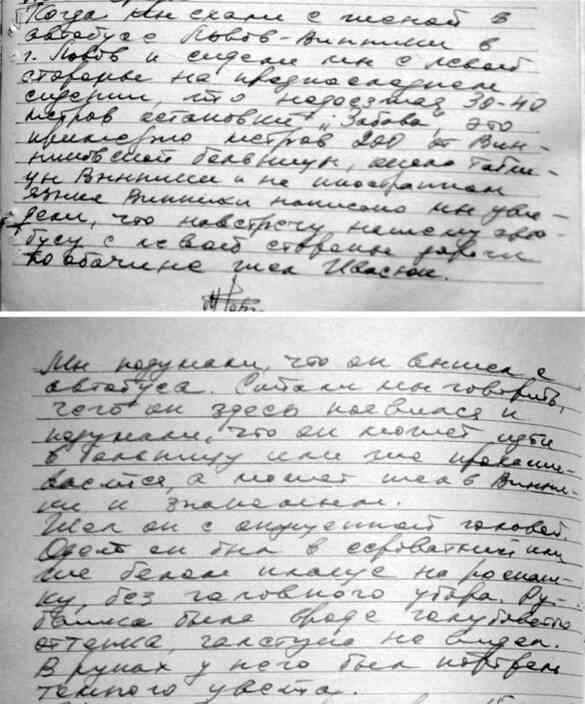 Когда мы ехали с женой в
автобусе Львов-Винники в
г. Львов и сидели мы с левой
стороны на предпоследнем
сидении, что недоезжая 30-40
метров остановки "Забава", это
примерно метров 200 от Вин-
никовской больницы, около табли-
цы Винники и на иностранном
языке Винники написано мы уви-
дели, что навстречу нашему авто-
бусу с левой стороны дороги
по обочине шел Ивасюк.
Мы подумали, что он вышел с
автобуса. Стали мы говорить,
чего он здесь появился и
подумали, что он может идти
в больницу или же
а может шел в Винни-
ки к знакомым.
Шел он с опущенной головой.
Одет он был в сероватый или
же белом плаще на роспаш-
ку, без головного убора. Ру-
башка была вроде голубоватого
оттенка, галстука не видел.
В руках у него был портфель
темного цвета.